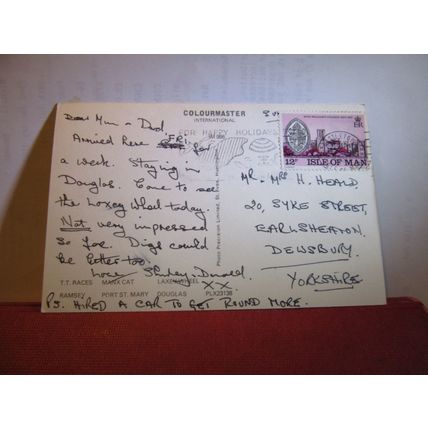 COLOURMASTER
INTERNATIONAL
FOR HAPPY HOLIDAYS
12P ISLE OF MAN
Dear Mum + Dad.
Arrived here FRI. for
a week. Staying in
Douglas. Come to see
the Loxey Wheel today.
Not very impressed
so far. Digs could
be better too.
Love Shirley + Donald
XX
Mr + Mrs H. HEALD
20, SYKE STREET,
EARLSHEATON,
DEWSBURY.
YORKSHIRE
Photo Precision Limited, St. Ives,
T.T. RACES MANX CAT LAXEY WHEEL
RAMSEY PORT ST. MARY DOUGLAS PLX23138
P.S. HIRED A CAR TO GET ROUND MORE.